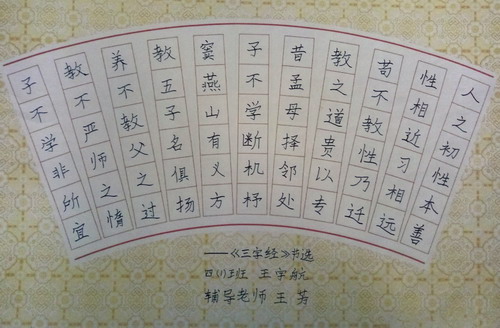 人之初性本善
性相近习相远
苟不教性乃迁
教之道贵以专
昔孟母择邻处
子不学断机杼
窦燕山有义方
教五子名俱扬
养不教父之过
教不严师之惰
子不学非所宜
——《三字经》节选
四(1)班 王宇航
辅导老师 王芳